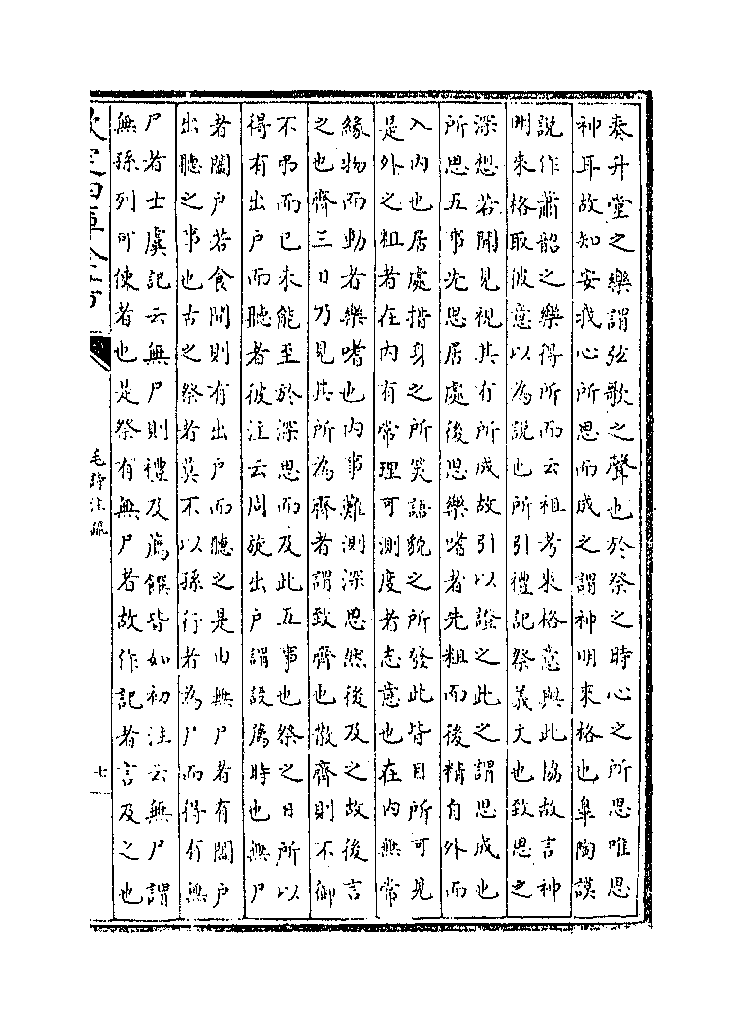 奏升堂之樂謂弦歌之聲也於祭之時心之所思唯思
神耳故知安我心所思而成之謂神明來格也臯陶謨
說作蕭韶之樂得所而云祖考來格意與此協故言神
明來格取彼意以為說也所引禮記祭義文也致思之
深想若聞見視其有所成故引以證之此之謂思成也
所思五事先思居處後思樂嗜者先粗而後精自外而
入內也居處措身之所笑語貌之所發此皆目所可見
是外之粗者在內有常理可測度者志意也在內無常
緣物而動者樂嗜也內事難測深思然後及之故後言
之也齊三日乃見其所為齊者謂致齊也散齊則不御
不弔而已未能至於深思而及此五事也祭之日所以
得有出戶而聽者彼注云周旋出戶謂設薦時也無尸
者闔戶若食間則有出戶而聽之是由無尸者有闔戶
出聽之事也古之祭者莫不以孫行者為尸而得有無
尸者士虞記云無尸則禮及薦饌皆如初注云無尸謂
無孫列可使者也是祭有無尸者故作記者言及之也
欽定四庫全書
毛詩注疏
七